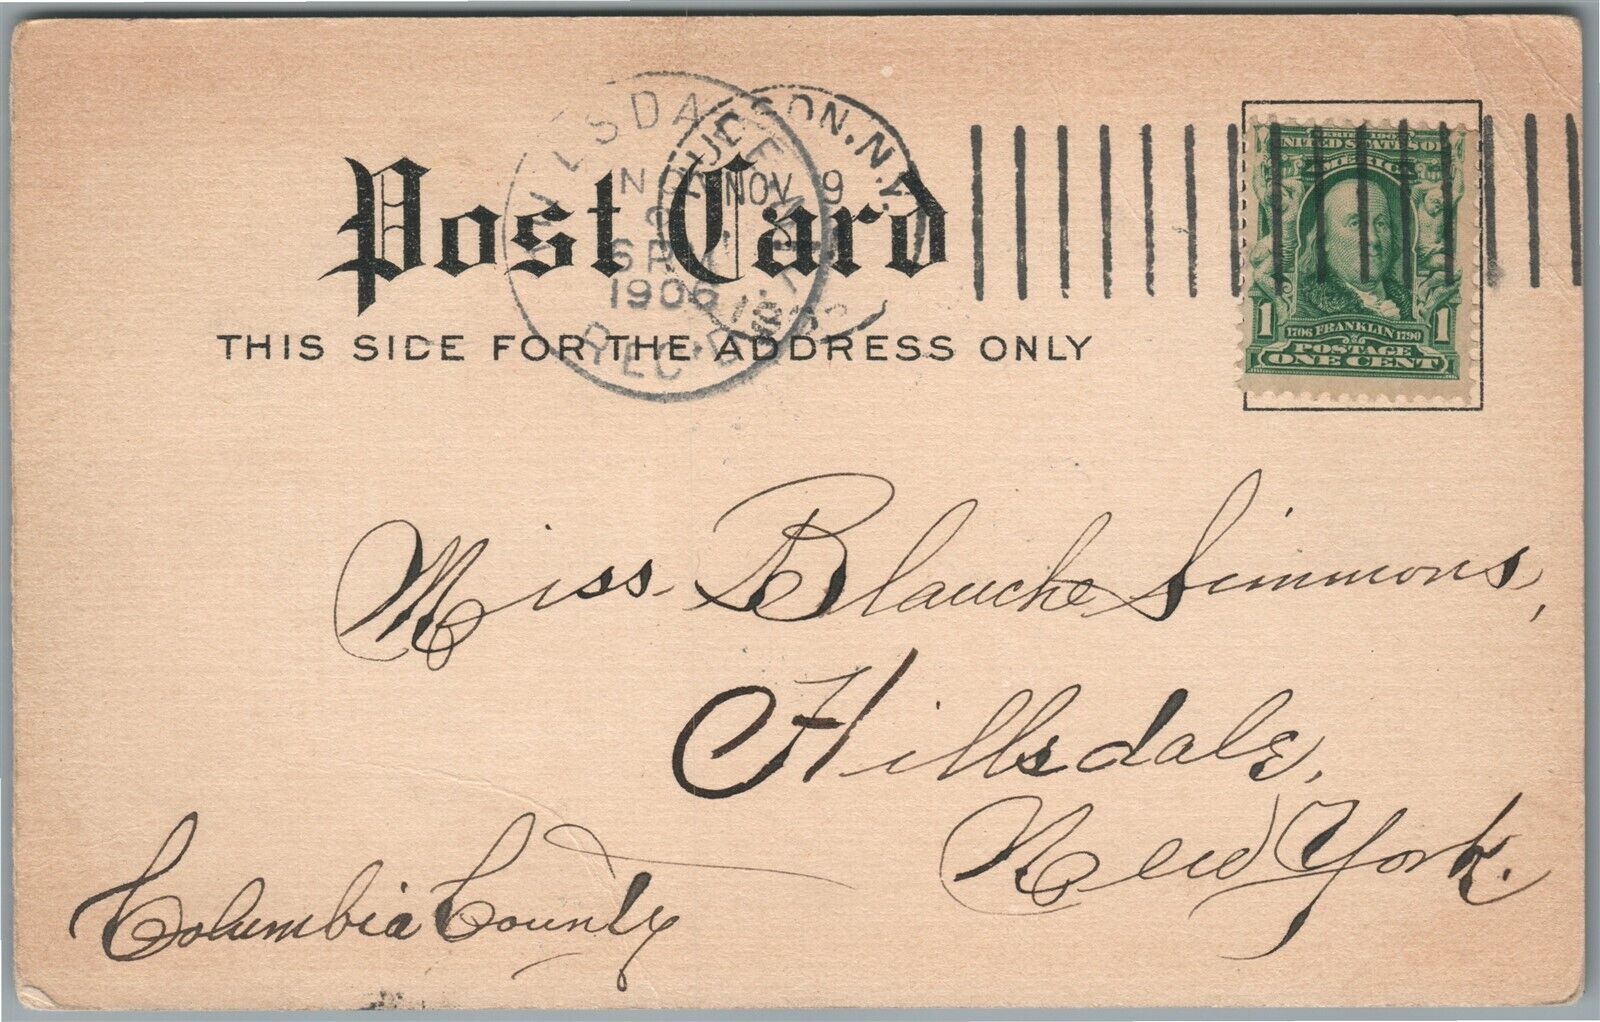 HILLSDALE
NEW YORK
NOV
9
6 PM
1906
REC'D.
HUDSON, N.Y.
NOV 9
Post Card
THIS SIDE FOR THE ADDRESS ONLY
SERIES 1902
UNITED STATES OF
AMERICA
1 1706 FRANKLIN 1790 1
POSTAGE
ONE CENT
Miss. Blanche Simmons,
Hillsdale,
New York.
Columbia County